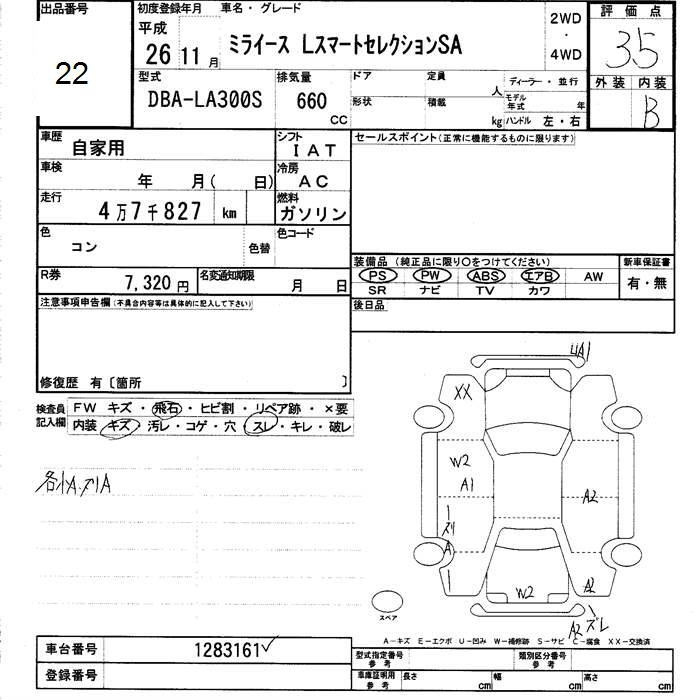 出品番号
22
初度登録年月
平成
26 11 月
車名・グレード
ミライース LスマートセレクションSA
2WD
・
4WD
評価点
3.5
外装 内装
B
型式
DBA-LA300S
排気量
660
CC
ドア
定員
人
形状
積載
kg
ディーラー・並行
モデル年式
年
ハンドル 左・右
車歴
自家用
シフト
IAT
車検
年 月( 日)
冷房
AC
走行
4万7千827 km
燃料
ガソリン
色
コン
色替
色コード
R券
7,320 円
名変通知期限
月 日
セールスポイント(正常に機能するものに限ります)
装備品 (純正品に限り〇をつけてください)
PS PW ABS エアB AW
SR ナビ TV カワ
新車保証書
有・無
後日品
注意事項申告欄(不具合内容等は具体的に記入して下さい)
修復歴 有〔箇所 〕
検査員記入欄
FW キズ・飛石・ヒビ割・リペア跡・×要
内装 キズ・汚レ・コゲ・穴・スレ・キレ・破レ
各小A.
UA1
XX
W2
A1
A2
A
W2
A2
A2 ズレ
スペア
A-キズ E-エクボ U-凹み W-補修跡 S-サビ C-腐食 XX-交換済
車台番号
1283161
登録番号
型式指定番号
参考
類別区分番号
参考
車庫証明用
参考
長さ
cm
幅
cm
高さ
cm